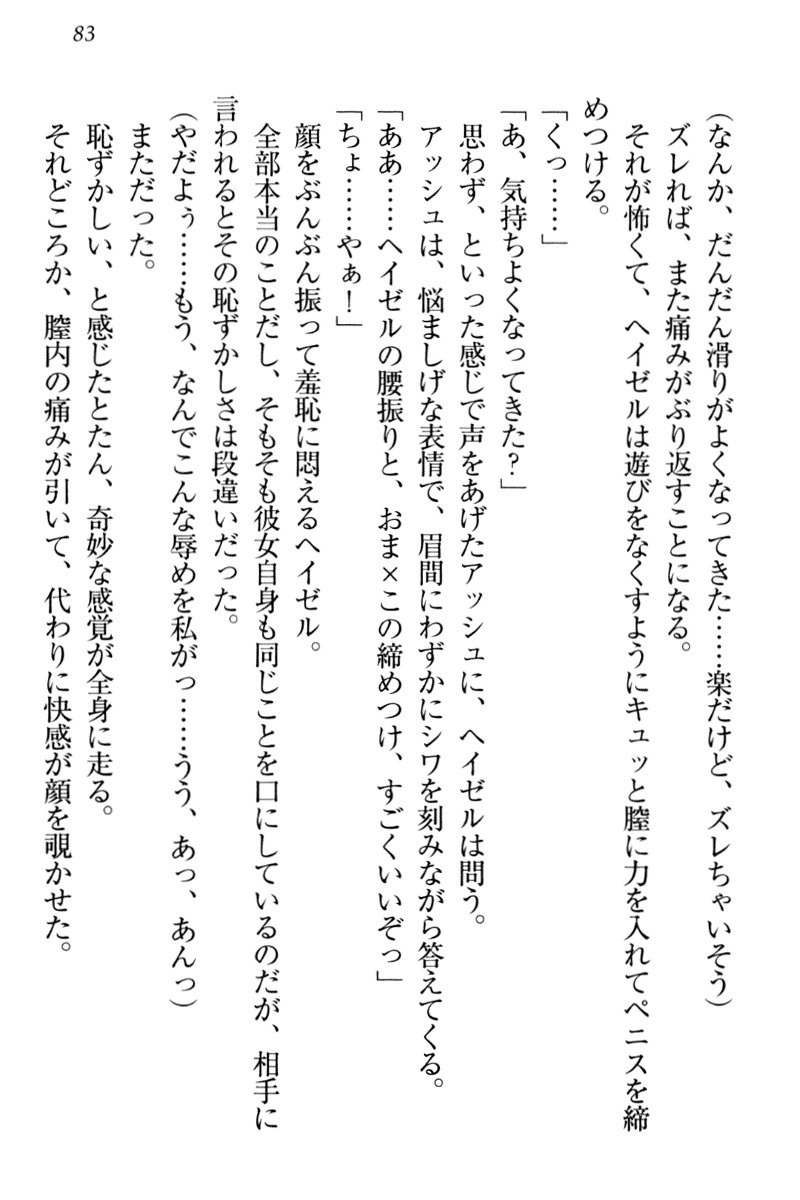 83
(なんか、だんだん滑りがよくなってきた……楽だけど、ズレちゃいそう)
ズレれば、また痛みがぶり返すことになる。
それが怖くて、ヘイゼルは遊びをなくすようにキュッと膣に力を入れてペニスを締
めつける。
「くっ……」
「あ、気持ちよくなってきた?」
思わず、といった感じで声をあげたアッシュに、ヘイゼルは問う。
アッシュは、悩ましげな表情で、眉間にわずかにシワを刻みながら答えてくる。
「ああ……ヘイゼルの腰振りと、おま×この締めつけ、すごくいいぞっ」
「ちょ……やぁ!」
顔をぶんぶん振って羞恥に悶えるヘイゼル。
全部本当のことだし、そもそも彼女自身も同じことを口にしているのだが、相手に
言われるとその恥ずかしさは段違いだった。
(やだよぅ……もう、なんでこんな辱めを私がっ……うう、あっ、あんっ)
まただった。
恥ずかしい、と感じたとたん、奇妙な感覚が全身に走る。
それどころか、膣内の痛みが引いて、代わりに快感が顔を覗かせた。